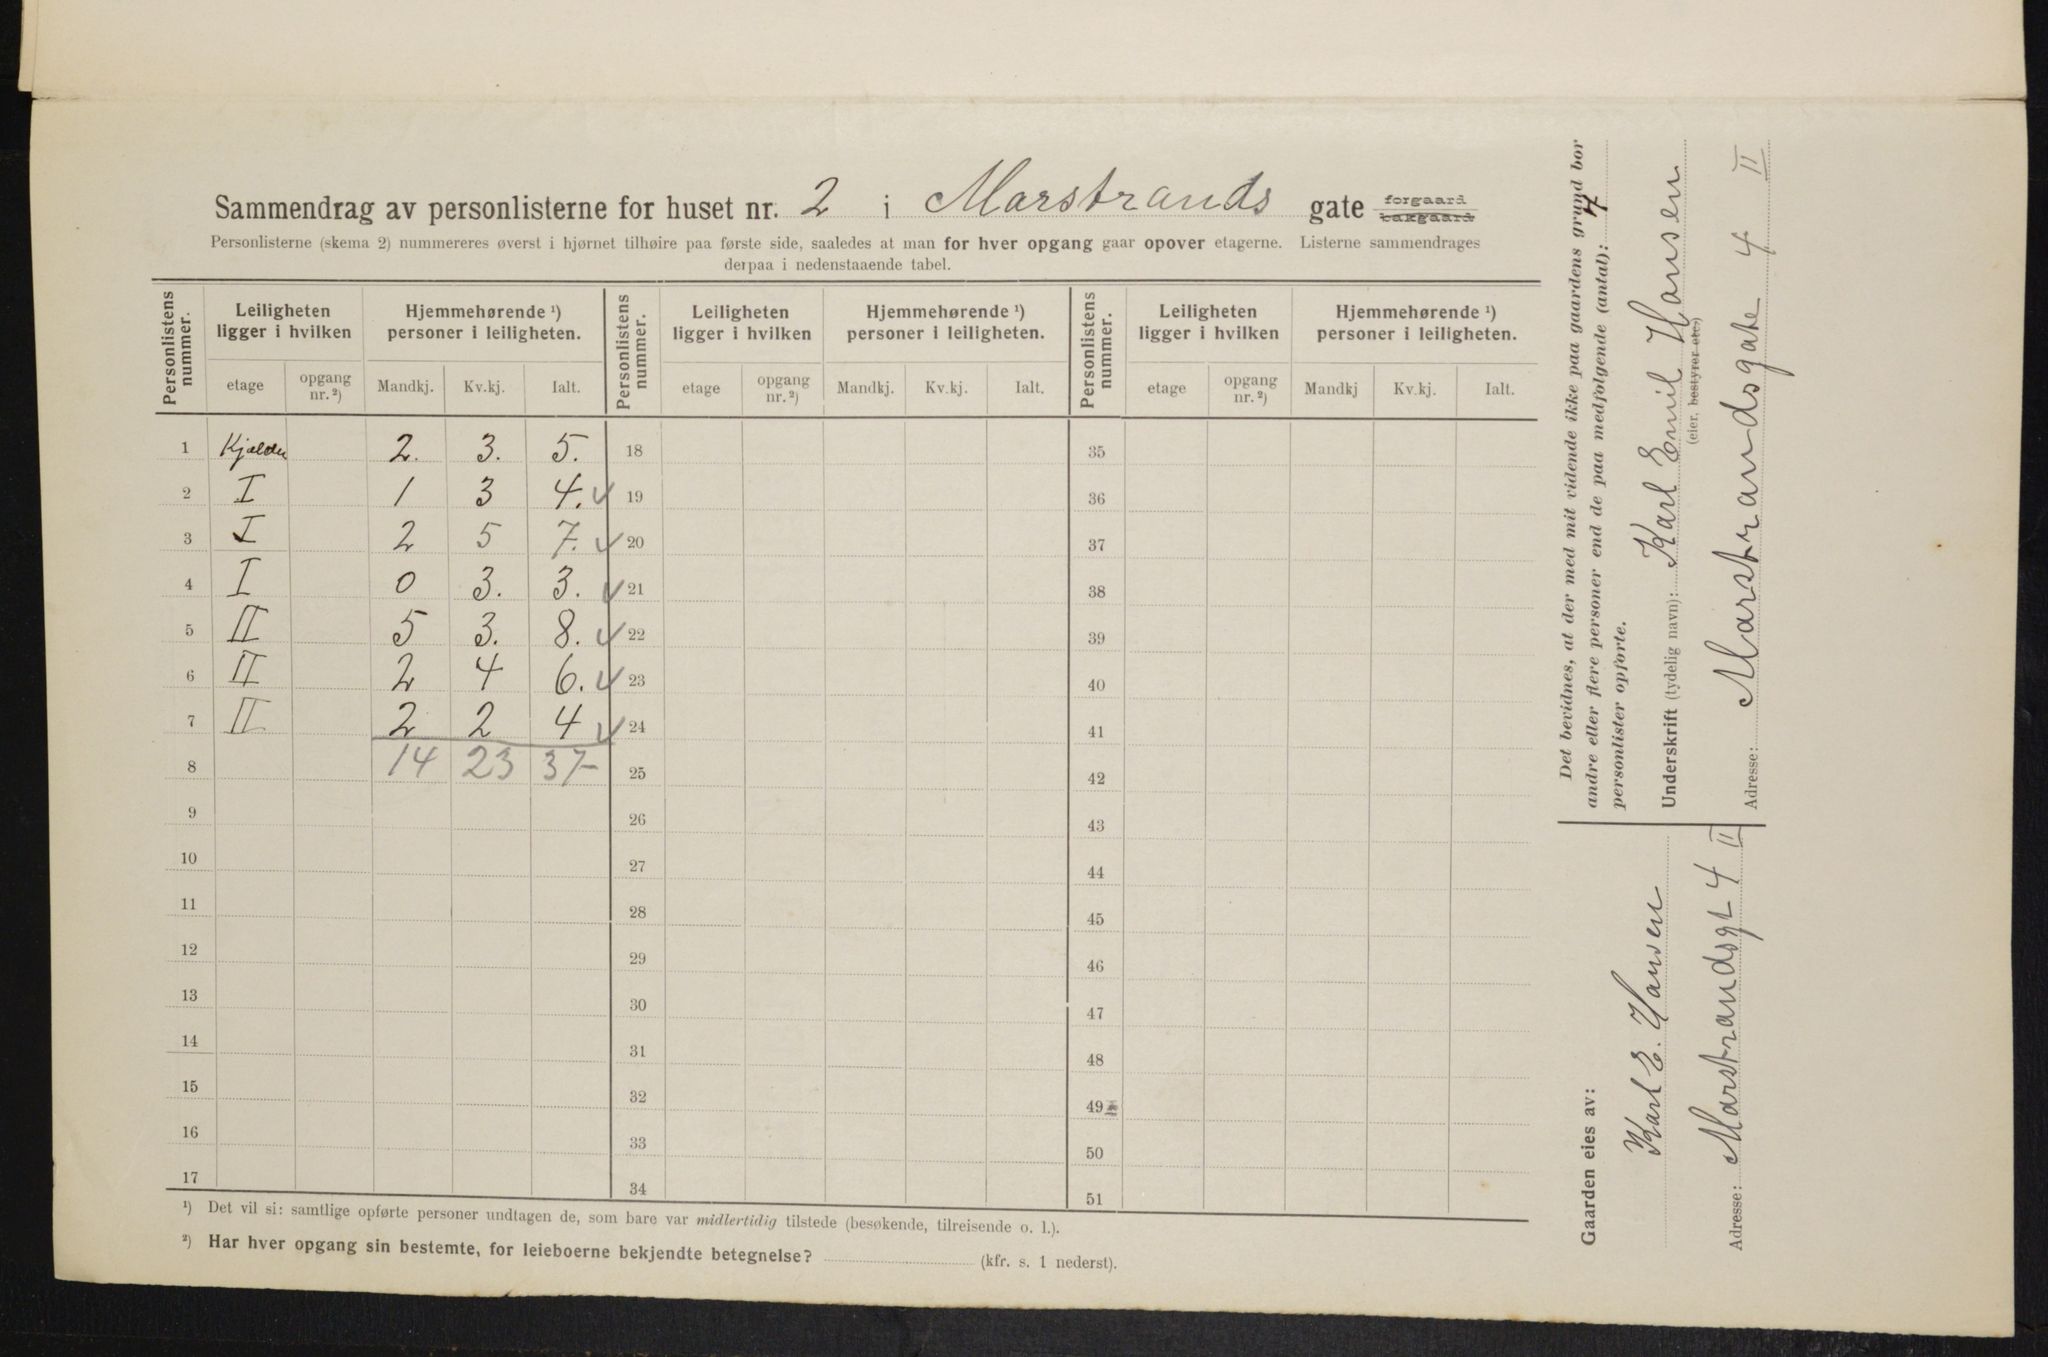 Sammendrag av personlisterne for huset nr. 2 i Marstrands gate forgaard bakgaard
Personlisterne (skema 2) nummereres øverst i hjørnet tilhøire paa første side, saaledes at man for hver opgang gaar opover etagerne. Listerne sammendrages
derpaa i nedenstaaende tabel.
Personlistens nummer. Leiligheten ligger i hvilken Hjemmehørende ¹) personer i leiligheten. Personlistens nummer. Leiligheten ligger i hvilken Hjemmehørende ¹) personer i leiligheten. Personlistens nummer. Leiligheten ligger i hvilken Hjemmehørende ¹) personer i leiligheten.
etage opgang nr. ²) Mandkj. Kv.kj. Ialt. etage opgang nr. ²) Mandkj. Kv.kj. Ialt. etage opgang nr. ²) Mandkj Kv.kj. Ialt.
1 Kjælder 2. 3. 5. 18 35
2 I 1 3 4. 19 36
3 I 2 5 7. 20 37
4 I 0 3. 3. 21 38
5 II 5 3. 8. 22 39
6 II 2 4 6. 23 40
7 II 2 2 4 24 41
8 14 23 37- 25 42
9 26 43
10 27 44
11 28 45
12 29 46
13 30 47
14 31 48
15 32 49
16 33 50
17 34 51
¹) Det vil si: samtlige opførte personer undtagen de, som bare var midlertidig tilstede (besøkende, tilreisende o. l.).
²) Har hver opgang sin bestemte, for leieboerne bekjendte betegnelse? (kfr. s. 1 nederst).
Det bevidnes, at der med mit vidende ikke paa gaardens grund bor
andre eller flere personer end de paa medfølgende (antal): 7
personlister opførte.
Underskrift (tydelig navn): Karl Emil Hansen
(eier, bestyrer etc)
Adresse: Marstrandsgate 4 II
Gaarden eies av:
Karl E. Hansen
Adresse: Marstrandsgt 4 II